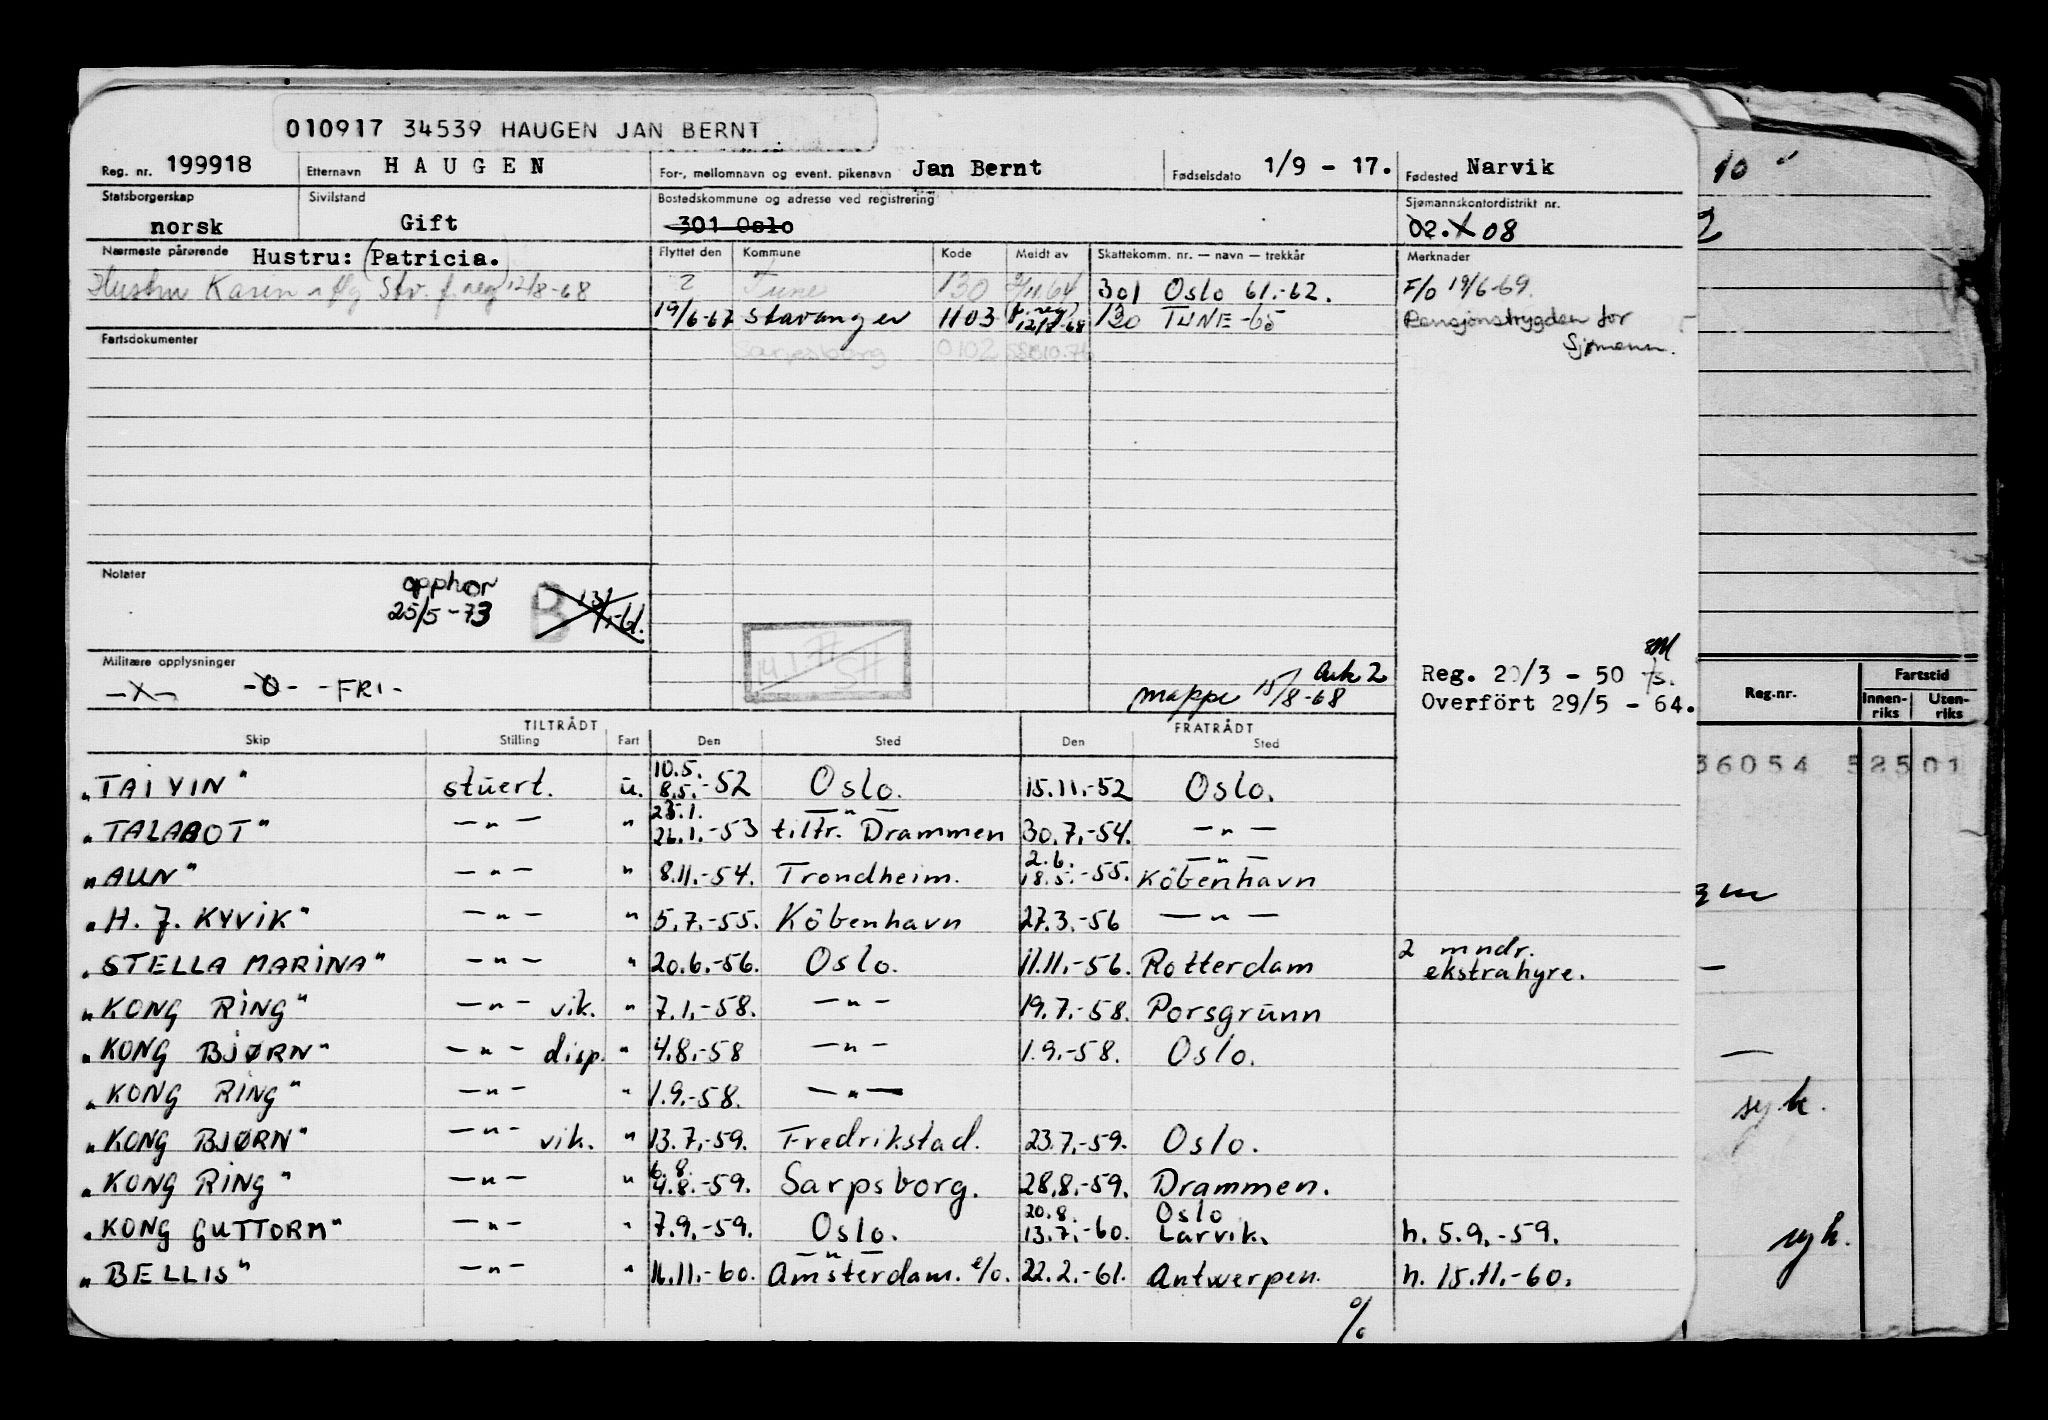 010917 34539 HAUGEN JAN BERNT
Reg. nr. 199918 Etternavn HAUGEN For-, mellomnavn og event. pikenavn Jan Bernt Fødselsdato 1/9 - 17. Fødested Narvik
Statsborgerskap norsk Sivilstand Gift Bostedskommune og adresse ved registrering 301 Oslo Sjømannskontordistrikt nr. 02. X 08
Nærmeste pårørende Hustru: (Patricia.) Flyttet den Kommune Kode Meldt av Skattekomm. nr. — navn — trekkår Merknader
Hustru Karin 12/8-68 2 Tune 130 301 Oslo 61.-62. F/o 19/6-69.
19/6-67 Stavanger 1103 12/8-68 130 TUNE -65 Pensjonstrygden for
Sjømenn.
Fartsdokumenter Sarpsborg 0102
Notater
opphør
25/5-73 B 13/1-61.
Militære opplysninger
-X- -O- -FRI-
Ark 2
mappe 15/8-68
Reg. 20/3 - 50
Overført 29/5 - 64.
TILTRÅDT FRATRÅDT
Skip Stilling Fart Den Sted Den Sted
"TAI YIN" stuert. u. 10.5. 8.5.-52 Oslo. 15.11.-52 Oslo.
"TALABOT" —"— " 23.1. 26.1.-53 —"— tiltr. Drammen 30.7.-54. —"—
"AUN" —"— " 8.11.-54. Trondheim. 2.6. 18.5.-55. —"— København
"H. J. KYVIK" —"— " 5.7.-55. København 27.3.-56 —"—
"STELLA MARINA" —"— " 20.6.-56. Oslo. 11.11.-56. Rotterdam 2 mndr. ekstrahyre.
"KONG RING" —"— vik. " 7.1.-58. —"— 19.7.-58. Porsgrunn
"KONG BJØRN" —"— disp. " 4.8.-58 —"— 1.9.-58. Oslo.
"KONG RING" —"— " 1.9.-58. —"—
"KONG BJØRN" —"— vik. " 13.7.-59. Fredrikstad. 23.7.-59. Oslo.
"KONG RING" —"— " 6.8. 4.8.-59. Sarpsborg. 28.8.-59. Drammen.
"KONG GUTTORM" —"— " 7.9.-59. Oslo. 20.8. 13.7.-60. Oslo Larvik. h. 5.9.-59.
"BELLIS" —"— " 16.11.-60. —"— Amsterdam. e/o. 22.2.-61. Antwerpen. h. 15.11.-60.
%
10"
2
Reg.nr. Fartstid
Innenriks Utenriks
36054 52501
syk.
syk.